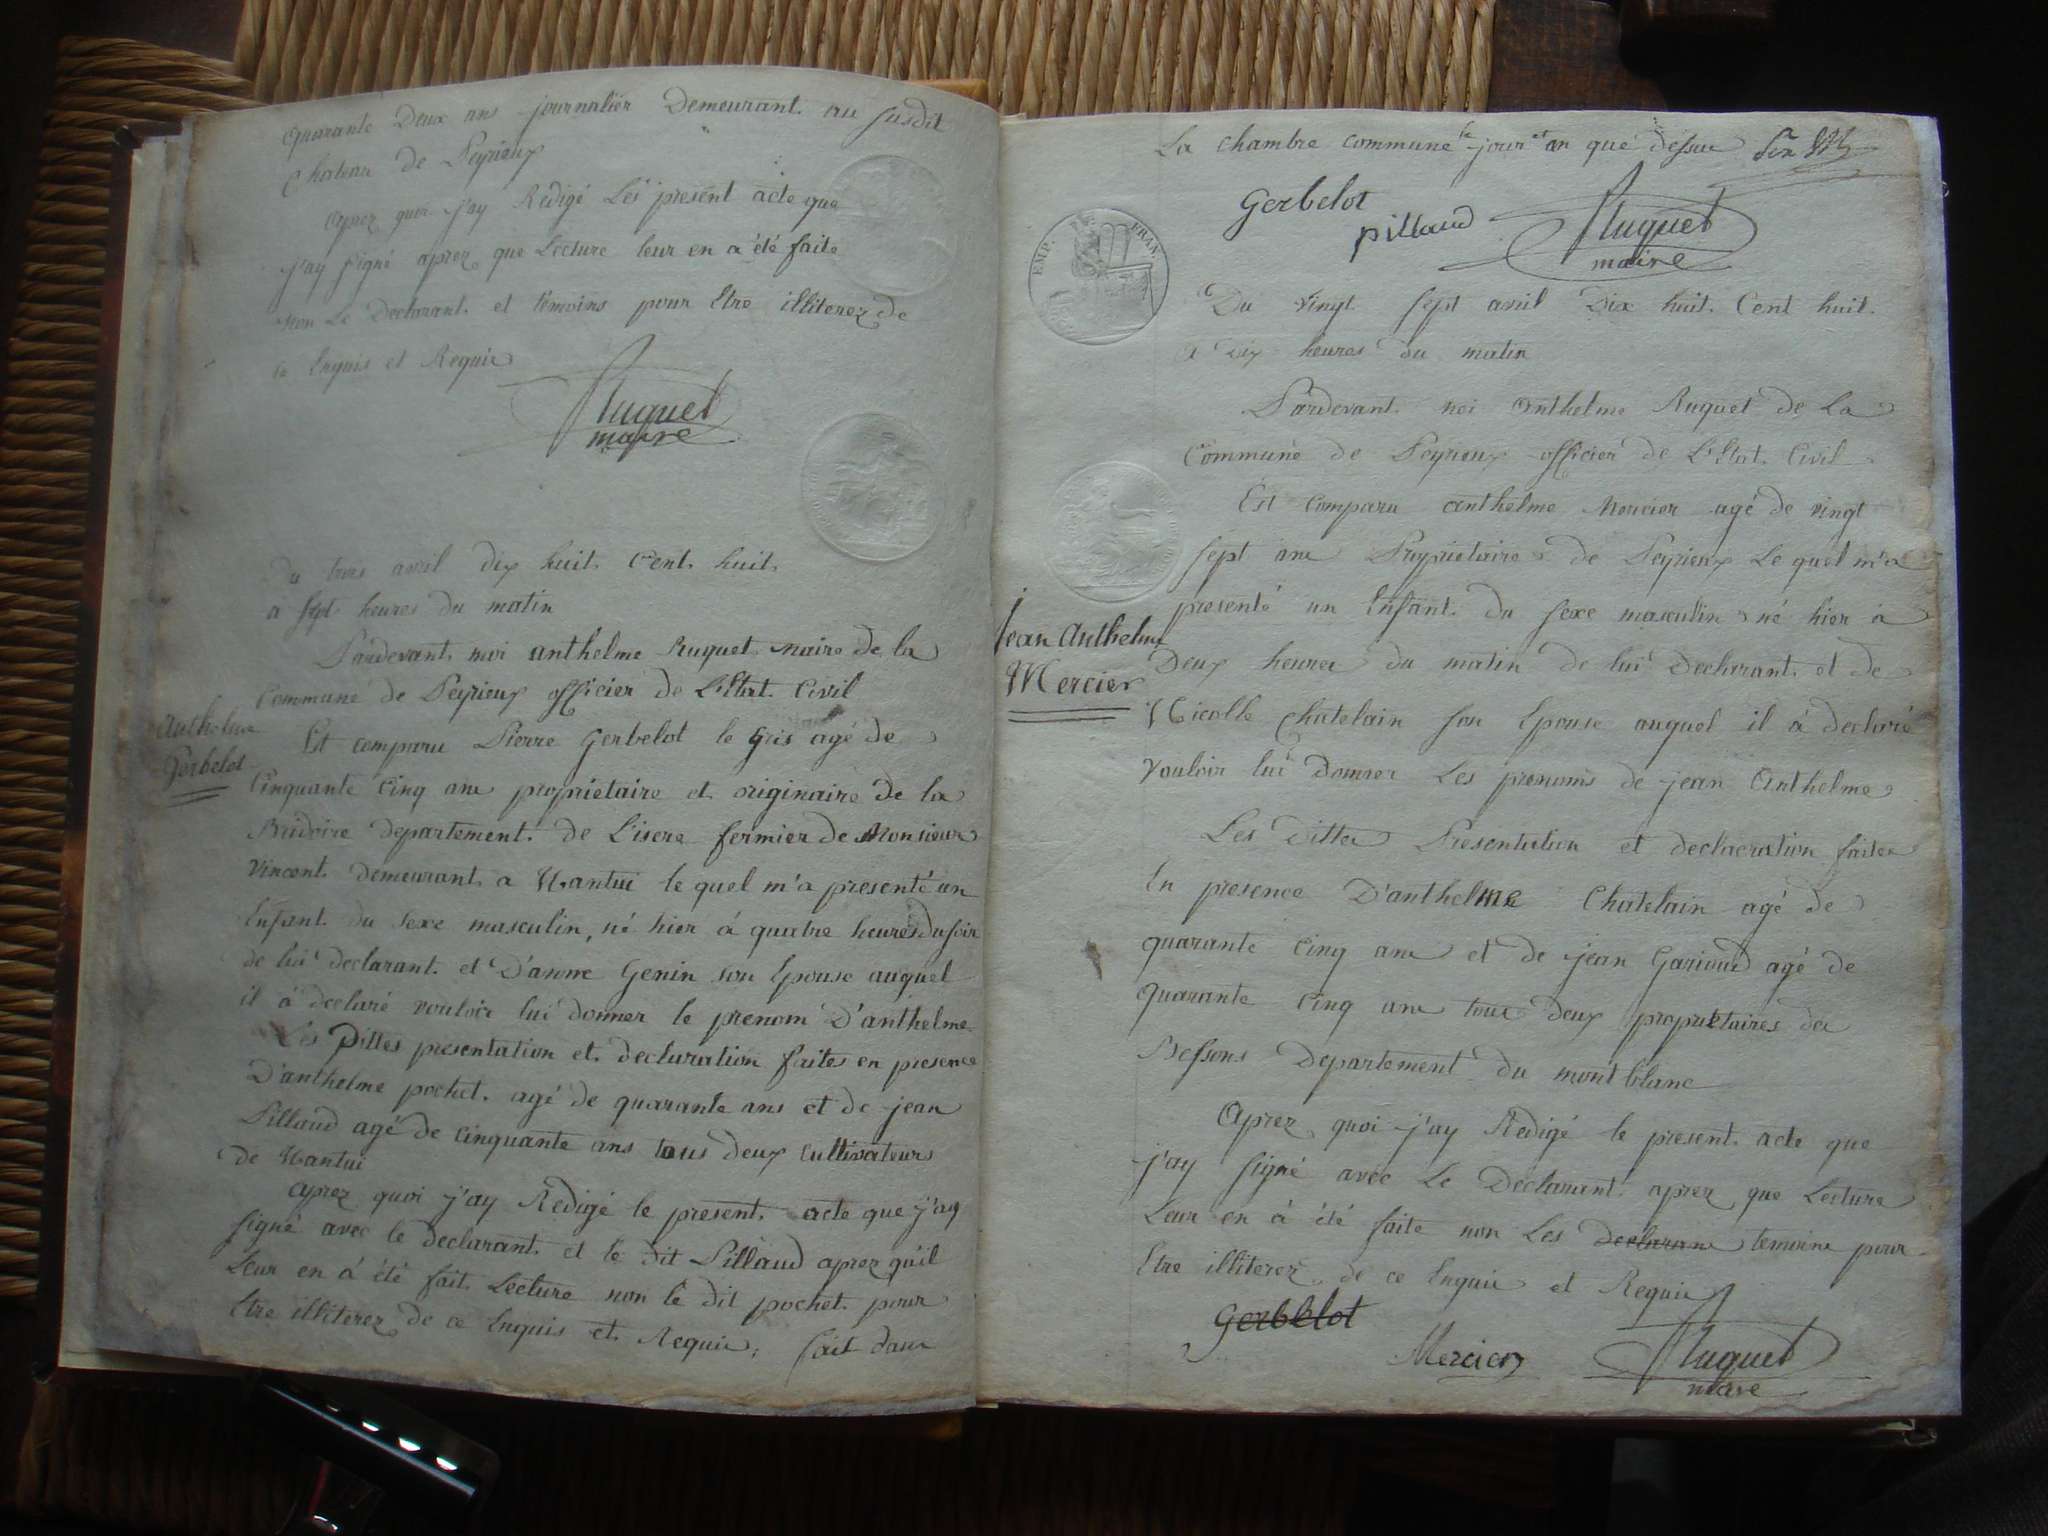 quarante Deux ans journalier Demeurant au susdit
Chateau de Peyrieux
aprez quoi j'ay Redigé Les present acte que
j'ay signé aprez que Lecture leur en a été faite
non Le Declarant et temoins pour Etre illiterez de
ce Enquis et Requis
Ruquet
maire
du trois avril dix huit Cent huit
a sept heures du matin
Pardevant moi anthelme Ruquet maire de la
Commune de Peyrieux officier de L'Etat Civil
Anthelme
Gerbelot
Est comparu Pierre Gerbelot le gris agé de
Cinquante Cinq ans proprietaire et originaire de la
Bridoire departement de L'isere fermier de Monsieur
Vincent demeurant a Nantui le quel m'a presenté un
Enfant du sexe masculin, né hier à quatre heures du soir
de lui declarant et D'anne Genin son Epouse auquel
il à declaré vouloir lui donner le prenom D'anthelme
Les Dittes presentation et declaration faites en presence
D'anthelme pochet agé de quarante ans et de jean
Pillaud agé de cinquante ans tous deux cultivateurs
de Nantui
aprez quoi j'ay Redigé le present acte que j'ay
signé avec le declarant et le dit Pillaud aprez quil
Leur en à été fait Lecture non le dit pochet pour
Etre illiterez de ce Enquis et Requis, fait dans
La chambre commune le jour et an que dessus
Gerbelot
pillaud
Ruquet
maire
EMP. FRAN.
Du vingt sept avril Dix huit Cent huit
a dix heures du matin
Pardevant moi Anthelme Ruquet de La
Commune de Peyrieux officier de L'Etat Civil
Est comparu anthelme Mercier agé de vingt
sept ans Proprietaire de Peyrieux Le quel m'a
presenté un Enfant du sexe masculin né hier à
Jean Anthelme
Mercier
Deux heures du matin de lui Declarant et de
Nicolle Chatelain son Epouse auquel il à declaré
vouloir lui donner Les prenoms de jean Anthelme
Les Dittes Presentation et declaration faites
En presence D'anthelme Chatelain agé de
quarante cinq ans et de jean Garioud agé de
quarante cinq ans tous deux proprietaires de
Bessons Departement du mont blanc
Aprez quoi j'ay Redigé le present acte que
j'ay signé avec Le Declarant aprez que Lecture
Leur en à été faite non Les declarans temoins pour
Etre illiterez de ce Enquis et Requis
Gerbelot
Mercier
Ruquet
maire